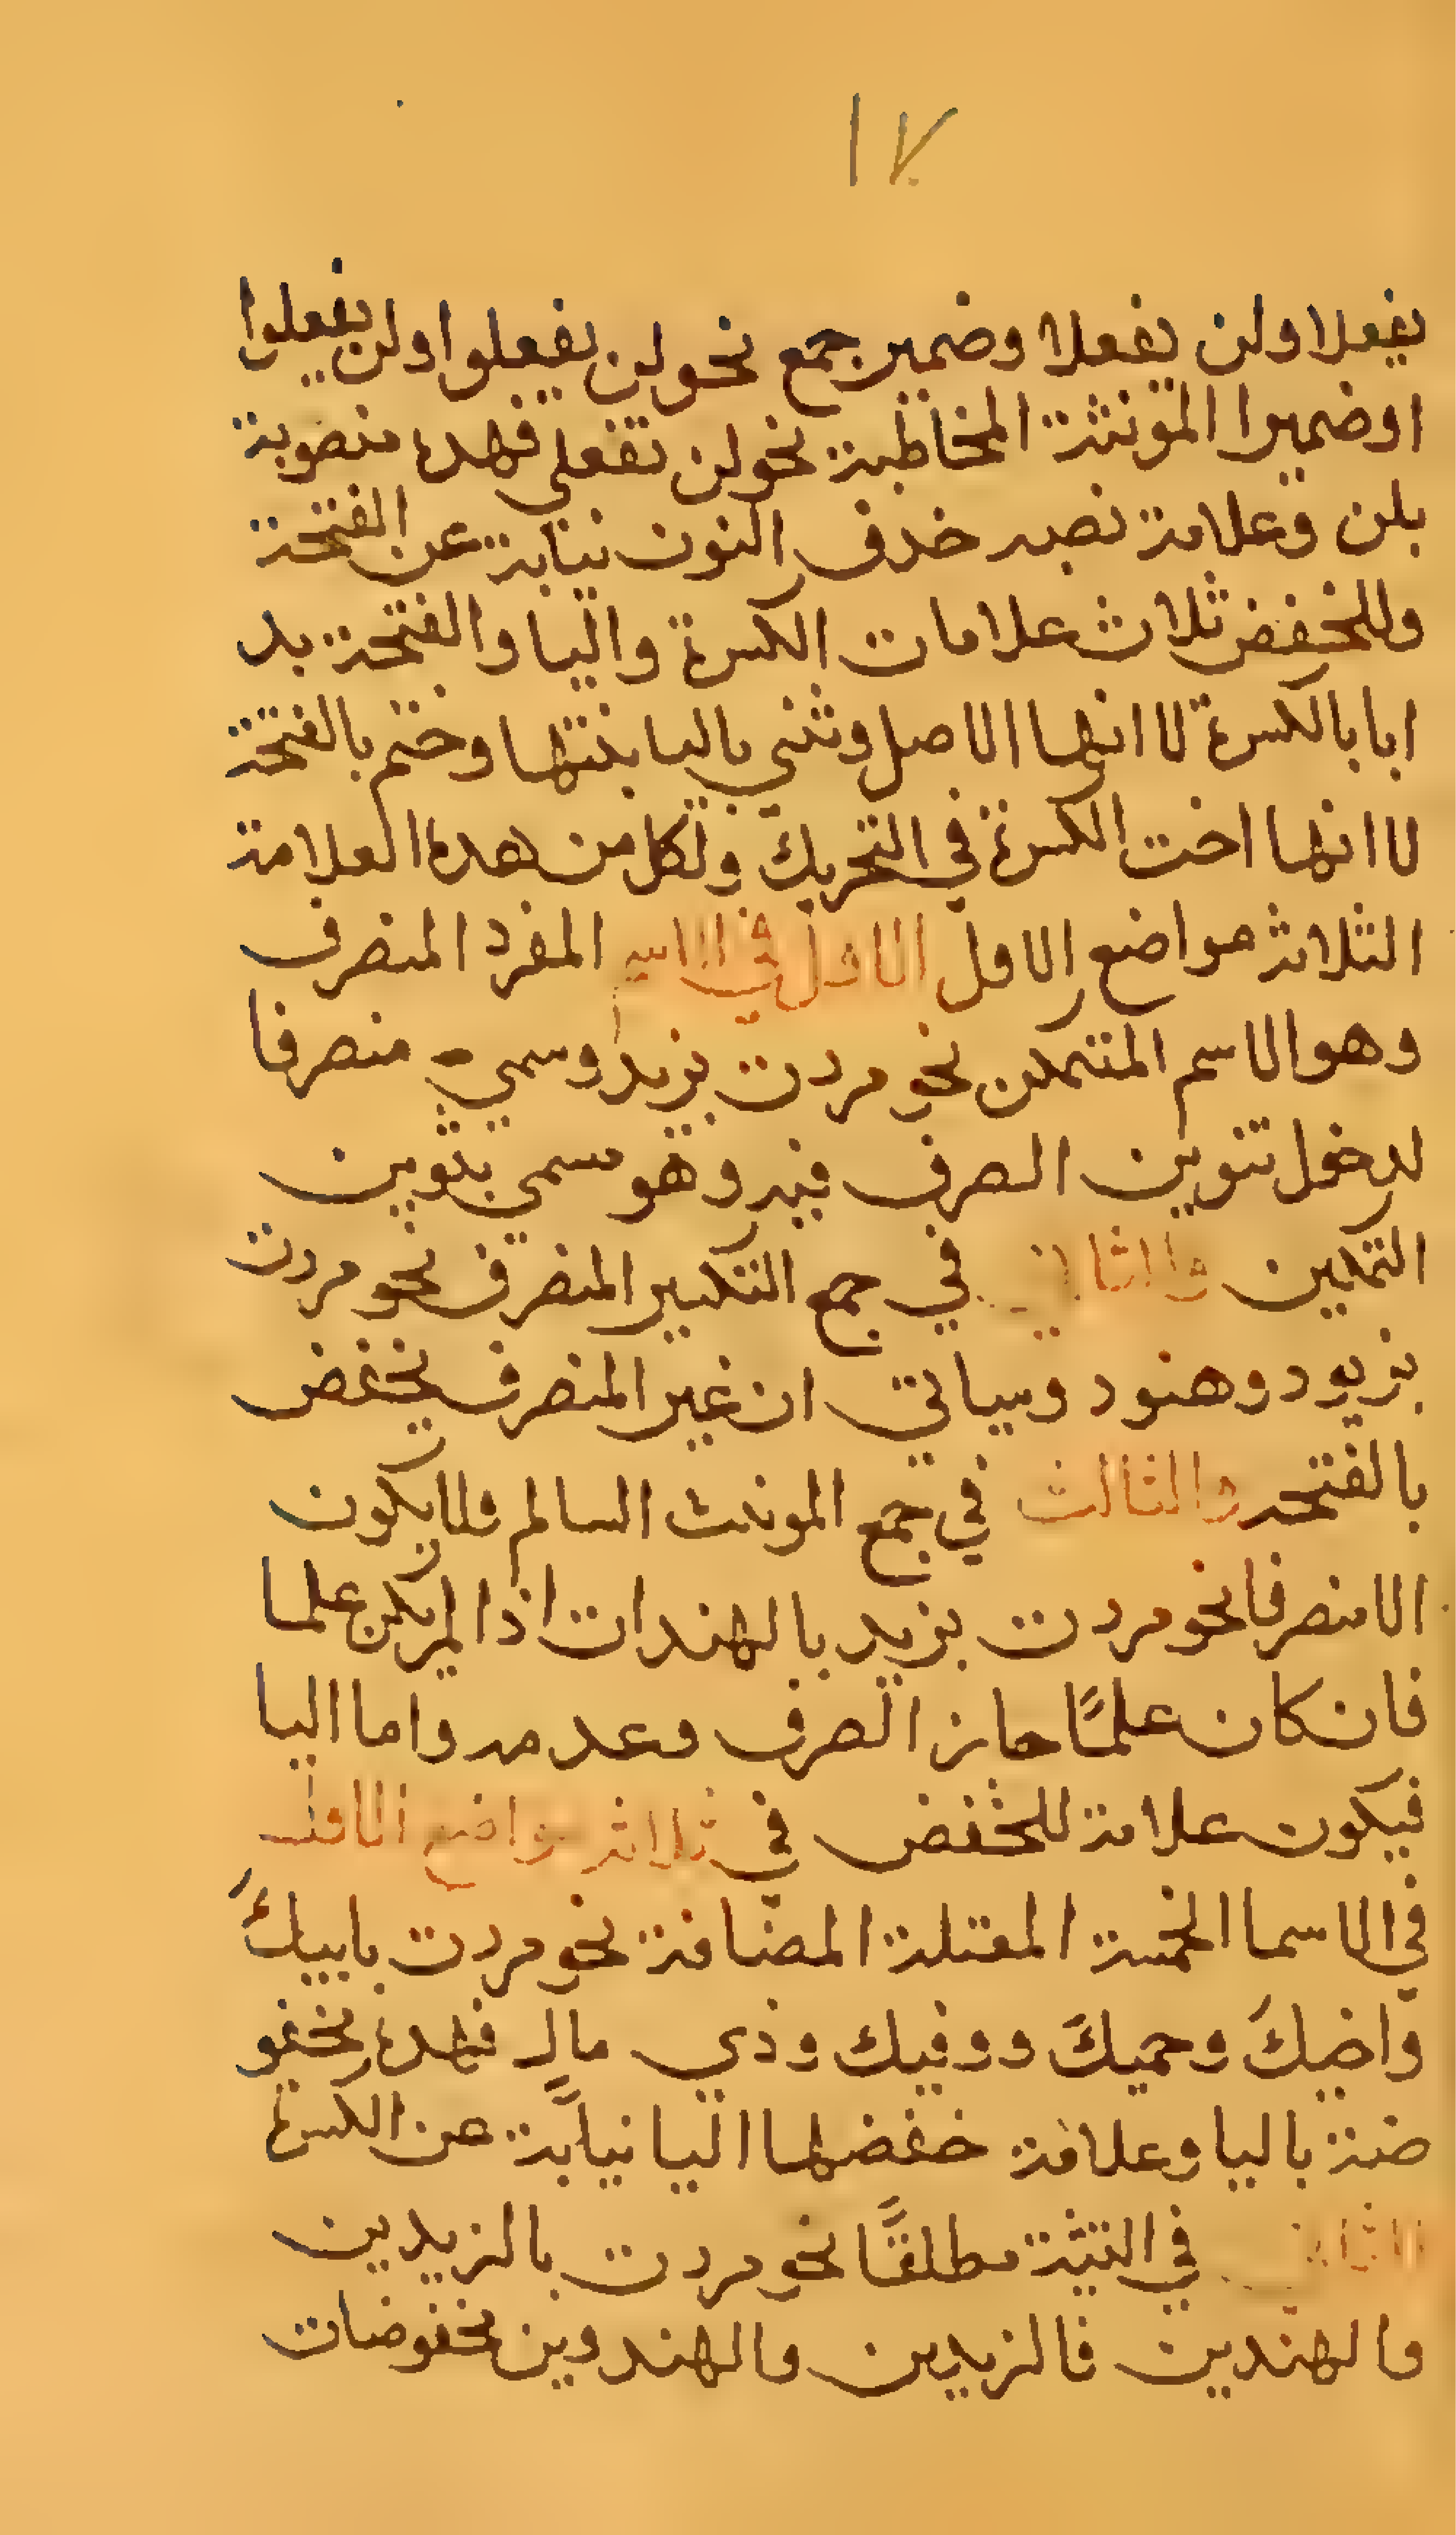 ١٧
يفعلا ولن تفعلا وضمير جمع نحو لن يفعلوا ولن تفعلوا
او ضميرا المونثة المخاطبة نحو لن تفعلي فهده منصوبة
بلن وعلامة نصبه خدف النون نيابة عن الفتحة
وللخفض ثلاث علامات الكسرة واليا والفتحة بد
ابا بالكسرة لا انها الاصل وثني باليا بنتها وختم بالفتحة
لا انها اخت الكسرة في التحريك ولكل من هده العلامة
الثلاثة مواضع الاول الاول في الاسم المفرد المنصرف
وهو الاسم المتمكن نحو مردت بزيد وسمي منصرفا
لدخل تنوين الصرف فيه وهو مسمي بتنوين
التمكين والثاني في جمع التكسير المنصرف نحو مردت
بزيود وهنود وسياتي ان غير المنصرف يخفض
بالفتحه والثالث في جمع المونث السالم فلا يكون
الا منصرفا نحو مردت بزيد بالهندات اذا لم يكن علما
فان كان علمًا جاز الصرف وعدمه واما اليا
فيكون علامة للخفض في ثلاثة مواضع الاول
في الاسما الخمسة المعتلة المضافة نحو مردت بابيكَ
واخيكَ وحميكَ ووفيك وذي مالٍ فهده مخفو
ضة باليا وعلامة خفضها اليا نيابًة عن الكسرة
الثاني في التثنة مطلقًا نحو مردت بالزيدين
والهندين فالزيدين والهندوين مخفوضات